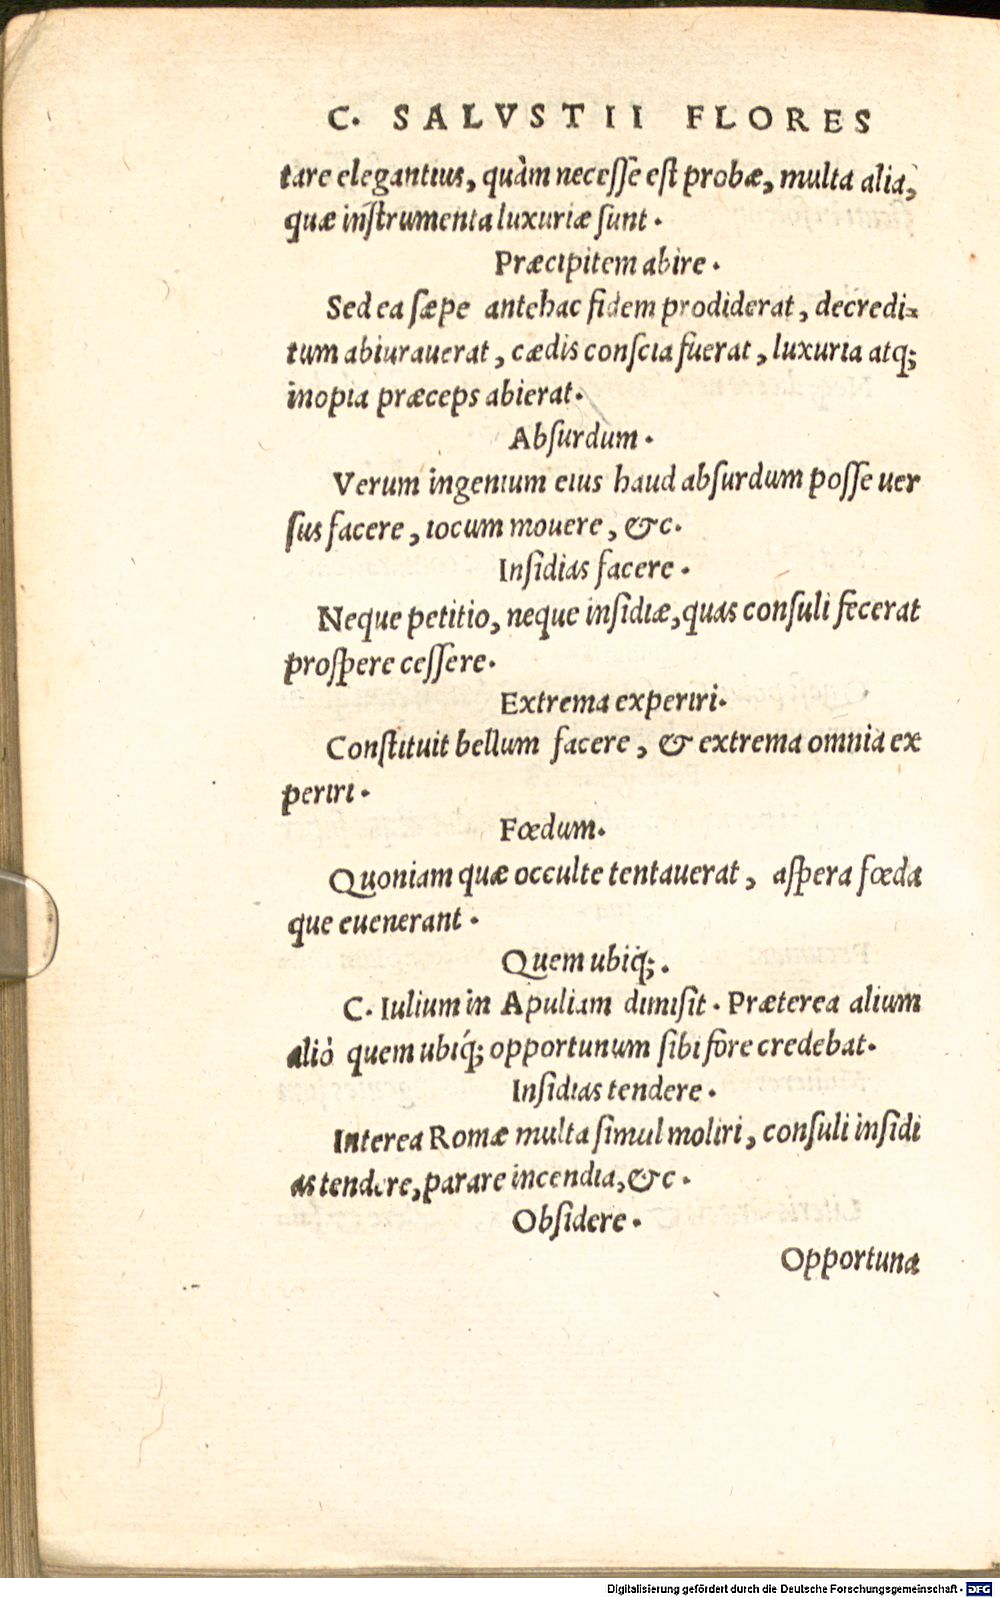 C. SALVSTII FLORES
tare elegantius, quàm necesse est probæ, multa alia,
quæ instrumenta luxuriæ sunt.
Præcipitem abire.
Sed ea sæpe antehac fidem prodiderat, decredi-
tum abiurauerat, cædis conscia fuerat, luxuria atq;
inopia præceps abierat.
Absurdum.
Verum ingenium eius haud absurdum posse uer
sus facere, iocum mouere, &c.
Insidias facere.
Neque petitio, neque insidiæ, quas consuli fecerat
prospere cessere.
Extrema experiri.
Constituit bellum facere, & extrema omnia ex
periri.
Fœdum.
Quoniam quæ occulte tentauerat, aspera fœda
que euenerant.
Quem ubiq;.
C. Iulium in Apuliam dimisit. Præterea alium
aliò quem ubiq; opportunum sibi fore credebat.
Insidias tendere.
Interea Romæ multa simul moliri, consuli insidi
as tendere, parare incendia, &c.
Obsidere.
Opportuna
Digitalisierung gefördert durch die Deutsche Forschungsgemeinschaft - DFG